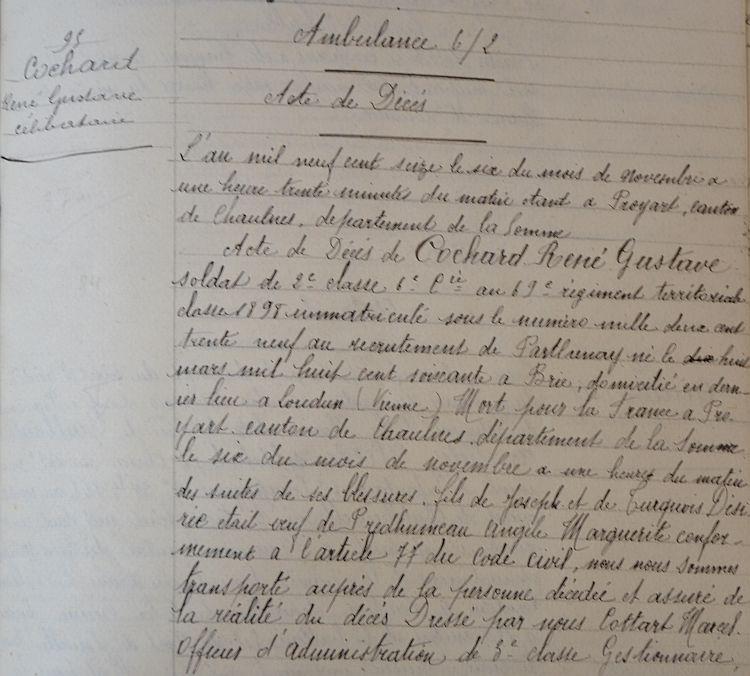 95
Cochard
René Gustave
célibataire
Ambulance 6/2
Acte de Décés
L'an mil neuf cent seize le six du mois de novembre a
une heure trente minutes du matin etant a Proyart, canton
de Chaulnes, departement de la Somme
Acte de Décés de Cochard René Gustave
soldat de 2e classe 6e Cie au 69e régiment territoriale
classe 1898 immatriculé sous le numéro mille deux cent
trente neuf au recrutement de Parthenay né le dix huit
mars mil huit cent soixante a Brie, domicilié en dern-
ier lieu a Loudun (Vienne) Mort pour la France a Pro-
yart canton de Chaulnes département de la Somme
le six du mois de novembre a une heure du matin
des suites de ses blessures. fils de Joseph et de Turquois Dési
rée etait veuf de Prudhumeau Angèle Marguerite confor-
mement a l'article 77 du Code civil, nous nous sommes
transporté auprès de la personne décédée et assuré de
la réalité du décés Dressé par nous Cottart Marcel
Officier d'administration de 3e classe Gestionnaire,